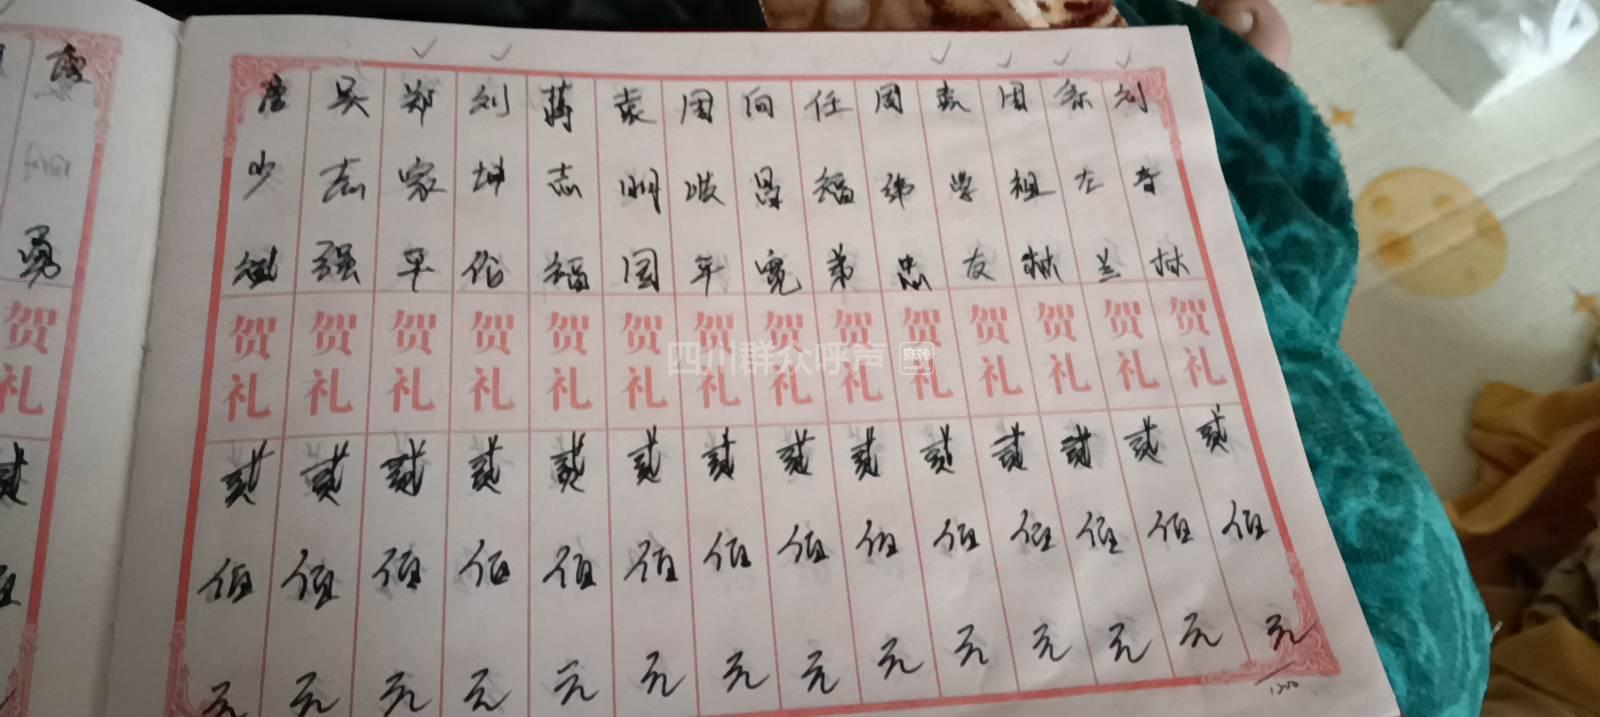 刘春林
余左兰
周祖林
袁学友
周纬忠
任福弟
向晏宽
周洪年
袁明国
蒋志福
刘坤伦
郑家平
吴志强
唐少斌
贺礼 贺礼 贺礼 贺礼 贺礼 贺礼 贺礼 贺礼 贺礼 贺礼 贺礼 贺礼 贺礼 贺礼
贰佰元 贰佰元 贰佰元 贰佰元 贰佰元 贰佰元 贰佰元 贰佰元 贰佰元 贰佰元 贰佰元 贰佰元 贰佰元 贰佰元
勇
贺礼
四川群众呼声
麻辣